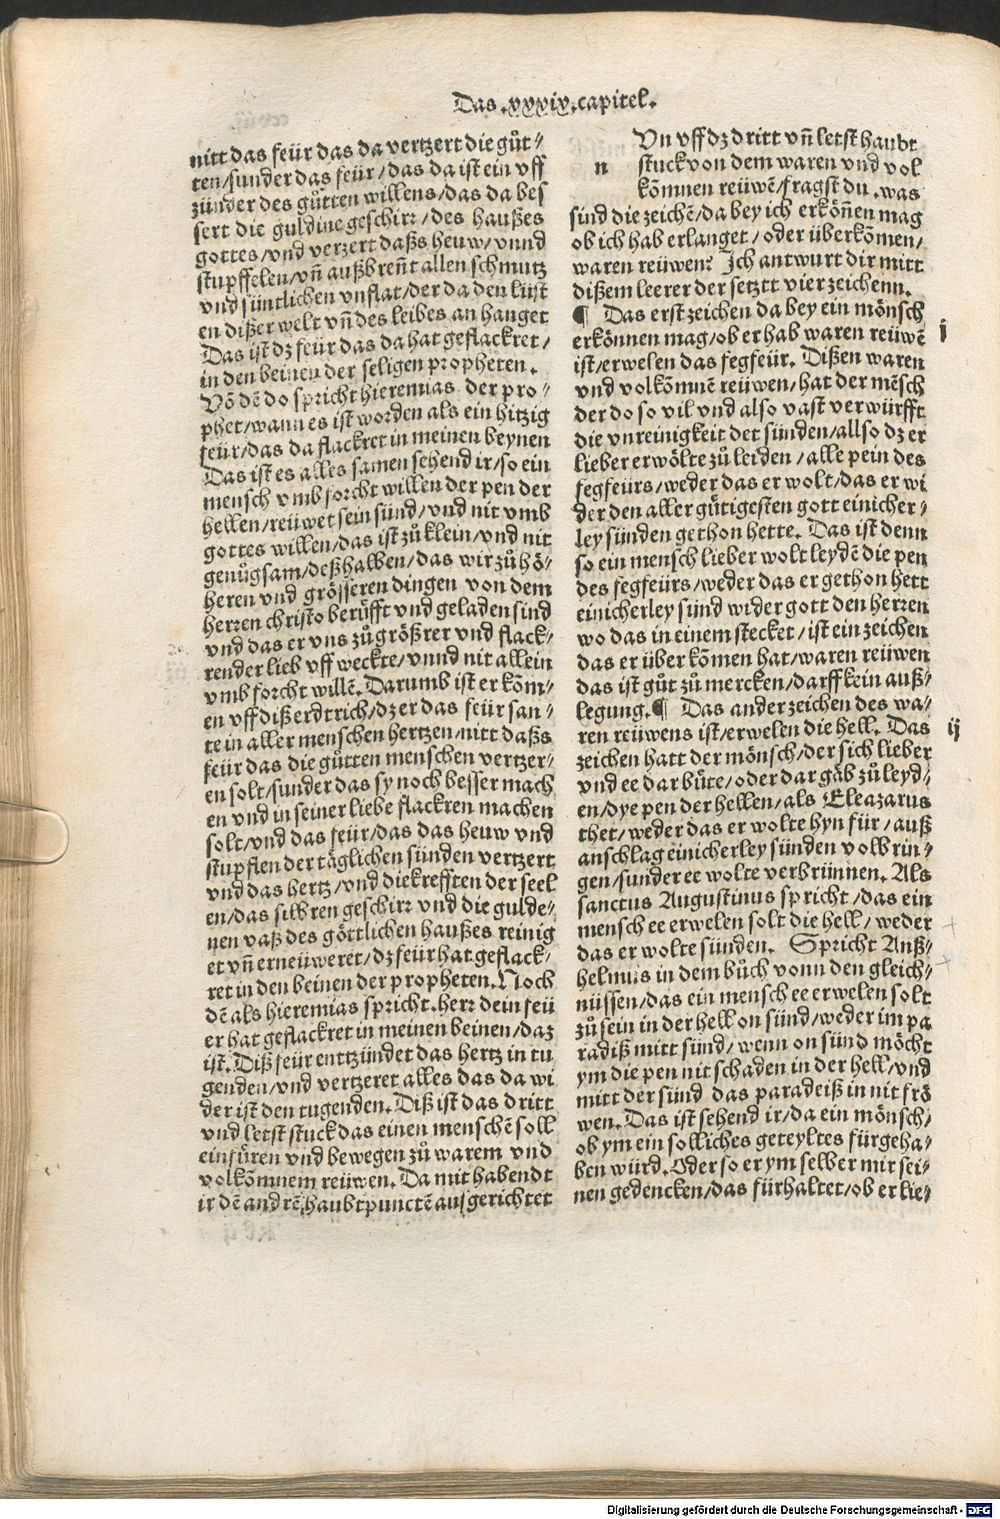 Das .xxxix. capitel.
nitt das feür das da vertzert die gůt⸗
ten/sunder das feür/das da ist ein vff
zünder des gůtten willens/das da bes
sert die guldine geschirr/des haußes
gottes/vnd verzert daßs heuw/vnnd
stupffelen/vn̄ außbren̄t allen schmutz
vnd süntlichen vnflat/der da den lüst
en dißer welt vn̄ des leibes an hanget
Das ist dz feür das da hat geflackret/
in den beinen der seligen propheten.
Vō dē do spricht hieremias der pro⸗
phet/wann es ist worden als ein hitzig
feür/das da flackret in meinen beynen
Das ist es alles samen sehend ir/so ein
mensch vmb forcht willen der pen der
hellen/reüwet sein sünd/vnd nit vmb
gottes willen/das ist zů klein/vnd nit
genůgsam/deßhalben/das wir zů hö⸗
heren vnd grösseren dingen von dem
herren christo berüfft vnd geladen sind
vnd das er vns zů größrer vnd flack⸗
render lieb vff weckte/vnnd nit allein
vmb forcht willē. Darumb ist er kōm⸗
en vff diß erdtrich/dz er das feür san⸗
te in aller menschen hertzen/nitt daßs
feür das die gůtten menschen vertzer⸗
en solt/sunder das sy noch besser mach
en vnd in seiner liebe flackren machen
solt/vnd das feür/das das heuw vnd
stupflen der täglichen sünden vertzert
vnd das hertz/vnd die krefften der seel
en/das silbren geschirr vnd die gulde⸗
nen vaß des göttlichen haußes reinig
et vn̄ erneüweret/dz feür hat geflack⸗
ret in den beinen der propheten. Noch
dē als hieremias spricht. herr dein feü
er hat geflackret in meinen beinen/daz
ist. Diß feür enttzündet das hertz in tu
genden/vnd vertzeret alles das da wi
der ist den tugenden. Diß ist das dritt
vnd letst stuck das einen menschē soll
einfüren vnd bewegen zů warem vnd
volkōmnem reüwen. Da mit habendt
ir dē andrē haubtpunctē ausgerichtet
n
Vn vff dz dritt vn̄ letst haubt
stuck von dem waren vnd vol
kōmnen reüwē/fragst du .was
sind die zeichē/da bey ich erkön̄en mag
ob ich hab erlanget/oder überkōmen/
waren reüwen? Ich antwurt dir mitt
dißem leerer der setztt vier zeichenn.
¶ Das erst zeichen da bey ein mönsch
erkönnen mag/ob er hab waren reüwē
i
ist/erwelen das fegfeür. Dißen waren
vnd volkōmnē reüwen/hat der mēsch
der do so vil vnd also vast verwürfft
die vnreinigkeit det sünden/allso dz er
lieber erwölte zů leiden/alle pein des
fegfeürs/weder das er wolt/das er wi
der den aller gütigesten gott einicher⸗
ley sünden gethon hette. Das ist denn
so ein mensch lieber wolt leydē die pen
des fegfeürs/weder das er gethon hett
einicherley sünd wider gott den herren
wo das in einem stecket/ist ein zeichen
das er über kōmen hat/waren reüwen
das ist gůt zů mercken/darff kein auß⸗
legung.¶ Das ander zeichen des wa⸗
ren reüwens ist/erwelen die hell. Das
ij
zeichen hatt der mönsch/der sich lieber
vnd ee dar büte/oder dar gäb zů leyd⸗
en/dye pen der hellen/als Eleazarus
thet/weder das er wolte hyn für/auß
anschlag einicherley sünden volbrin⸗
gen/sunder ee wolte verbrünnen. Als
sanctus Augustinus spricht/das ein
mensch ee erwelen solt die hell/weder
das er wolte sünden. Spricht Anß⸗
helmus in dem bůch vonn den gleich⸗
nüssen/das ein mensch ee erwelen solt
zů sein in der hell on sünd/weder im pa
radiß mitt sünd/wenn on sünd möcht
ym die pen nit schaden in der hell/vnd
mitt der sünd das paradeiß in nit frö
wen. Das ist sehend ir/da ein mönsch/
ob ym ein solliches geteyltes fürgeha⸗
ben würd. Oder so er ym selber mir sei⸗
nen gedencken/das fürhaltet/ob er lie⸗
Digitalisierung gefördert durch die Deutsche Forschungsgemeinschaft - DFG